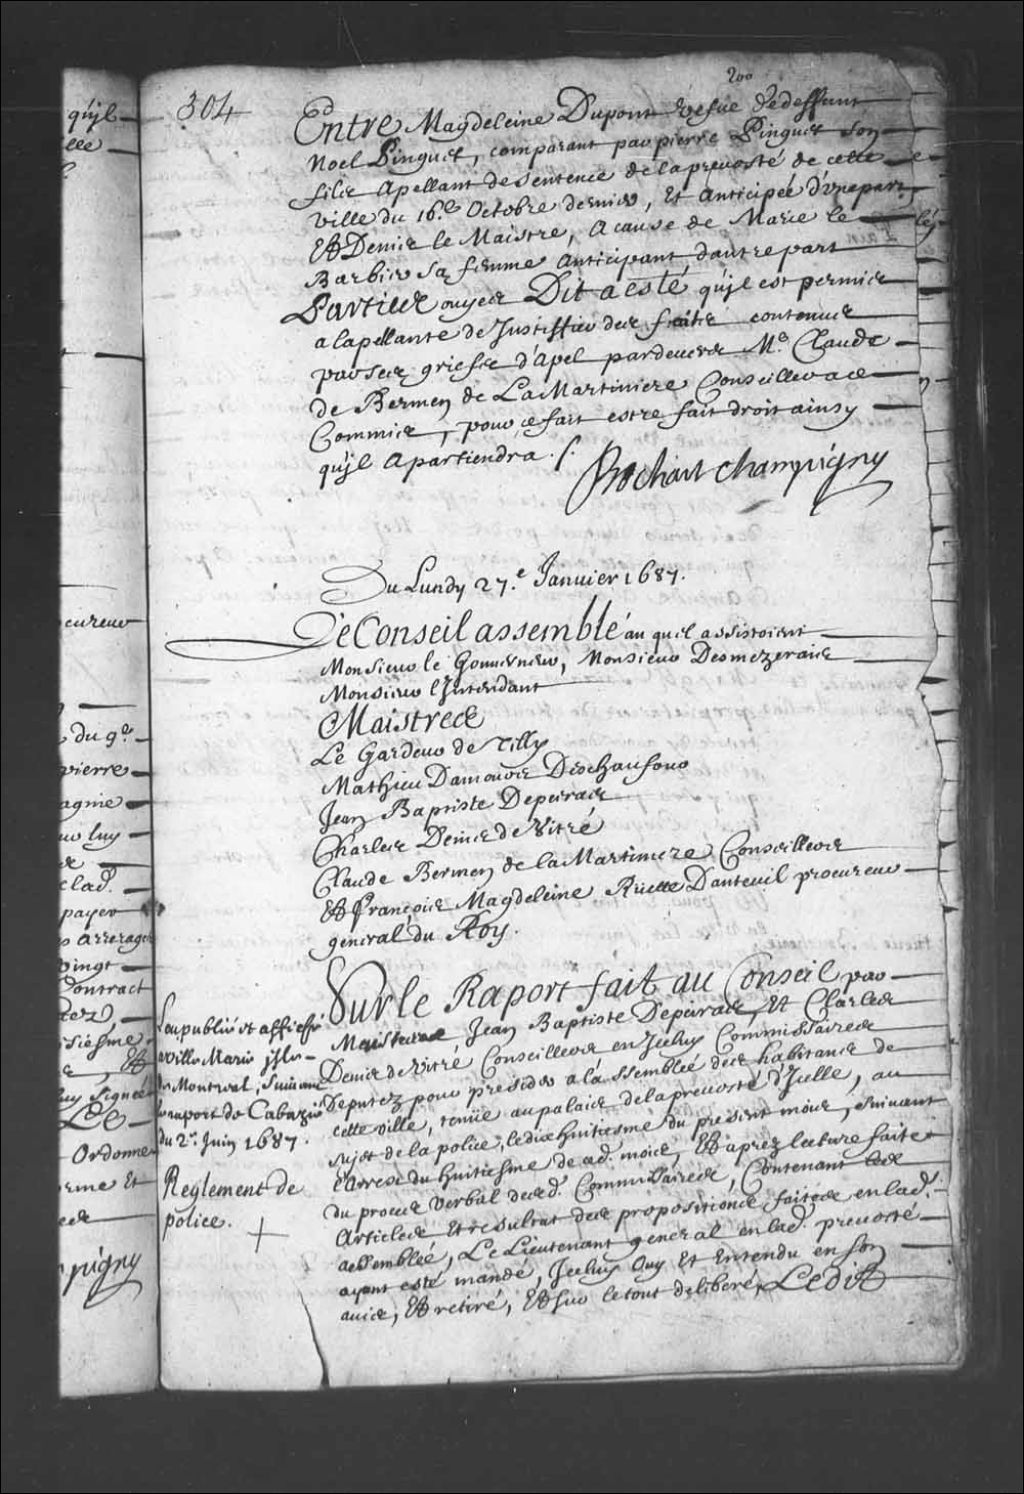 200
304
Entre Magdeleine Dupont vefue de deffunt
Noel Pinguet, comparant par pierre Pinguet son
filz Apellant de sentence de la preuosté de cette
ville du 16.e Octobre dernier, Et Anticipée d'vne part
Et Denis le Maistre, A cause de Marie le
Barbier sa femme Anticipant d'autre part
Parties ouyes Dit a esté qu'jl est permis
a lapellante de Justiffier des faits contenus
par ses griefs d'apel pardeuers M.e Claude
de Bermen de La Martiniere Conseiller a ce
Commis, pour ce fait estre fait droit ainsy
qu'jl Apartiendra ./.
Bochart Champigny
Du Lundy 27.e Januier 1687.
Le Conseil assemblé au quel assistoient
Monsieur le Gouuerneur, Monsieur Desmezerais
Monsieur l'Jntendant
Maistres
Le Gardeur de Tilly
Mathieu Damours Deschaufour
Jean Baptiste Depeiras
Charles Denis de Vitré
Claude Bermen de la Martiniere Conseillers
Et François Magdeleine Ruette Dauteuil procureur
general du Roy.
Sur le Raport fait au Conseil par
Maistres Jean Baptiste Depeiras, Et Charles
Denis de Vitré Conseillers en Jceluy Commissaires
Deputez pour presider a l'assemblée des habitans de
cette ville, tenüe au palais de la preuosté d'Jcelle, au
sujet de la police, le dix huitiesme du present mois, suiuant
l'arrest du huitiesme de ad. mois, Et aprez lecture faite
du proces verbal desd. Commissaires, Contenant les
Articles Et resultat des propositions faites en lad.
assemblée, Le Lieutenant general en lad. preuosté
ayant esté mandé, Jceluy Ouy Et Entendu en son
auis, Et retiré, Et sur le tout deliberé, Ledit
Leu publié et affiché
a Ville Marie jsle
de Montreal, suiuant
le raport de Cabazié
du 2.e Juin 1687.
Reglement de
police.
qu'jl
elle
du 9.e
pierre
agnie
luy
de
lad.
payer
arrerages
vingt
Contract
siesme
Et
signée
Le
Ordonne
Et
pigny